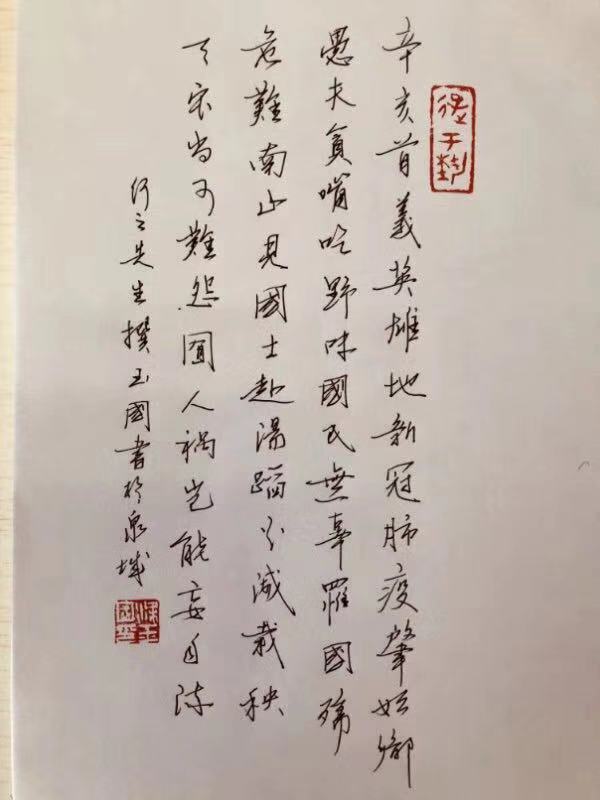 辛亥首義英雄地新冠肺疫肇始鄉
愚夫貪啃吃野味國民無辜罹國殤
危難南山見國士赴湯蹈火滅
天灾尚可難怨人禍豈能妄自
先生撰玉國書於泉城